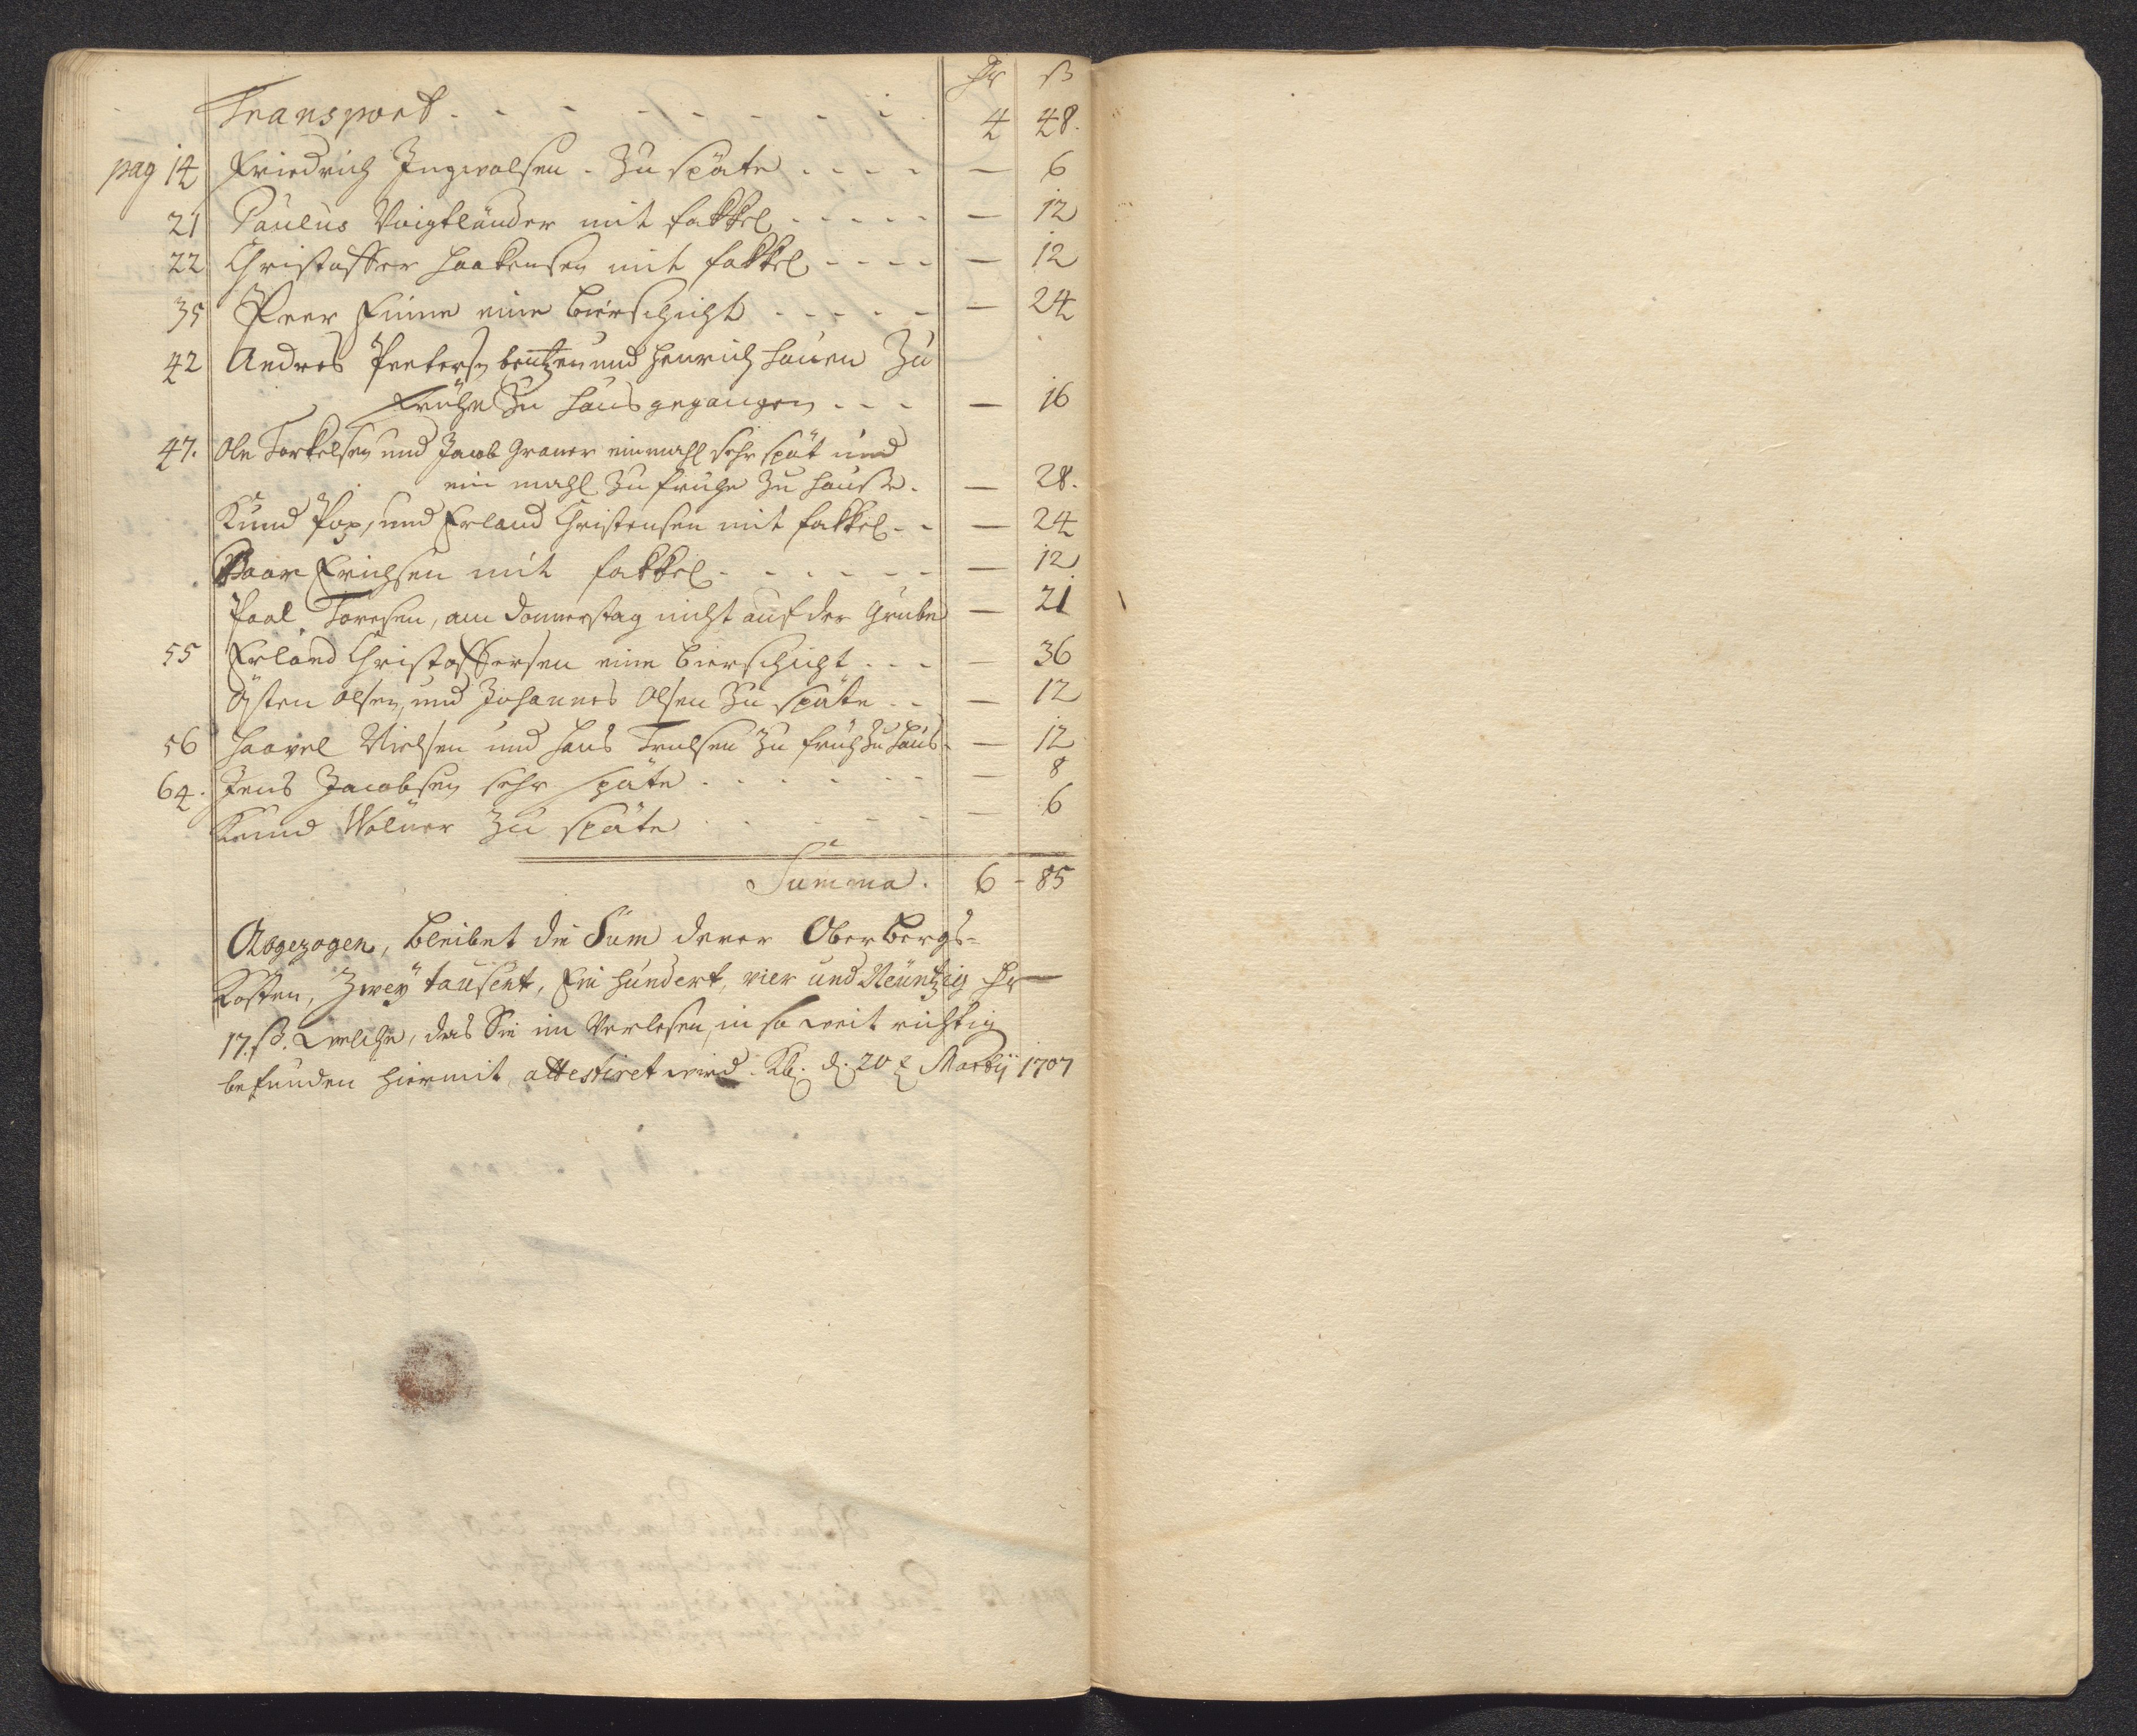 Rr ß
Transport - - - - - - - - 4 48.
pag 14 Friedrich Ingwolsen. Zu späte - - - - — 6
21 Paulus Voigtländer mit fakkel - - - - - — 12
22 Christoffer Haakensen mit fakkel - - - - — 12
35 Peer Finne eine Bierschicht - - - - - — 24
42 Andres Petersen und Henrich Hauen Zu
Frühe Zu Haus gegangen - - - — 16
47. Ole Torkelsen und Jacob Graner einmahl sehr spät und
ein mahl Zu frühe Zu Hause. — 28.
Knud Pop, und Erland Christensen mit fakkel - - — 24
Baar Erichsen mit fakkel - - - - - - — 12
Paal Toresen, am Donnerstag nicht auf der Grube — 21
55 Erland Christoffersen eine Bierschicht - - - — 36
Östen Olsen, und Johannes Olsen Zu späte - - — 12
56 Haavel Nielsen und Hans Trulsen Zu früh Zu Haus - — 12
64. Jens Jacobsen sehr späte - - - - - - — 8
Knud Wolner Zu späte - - - - - — 6
Summa. 6 - 85
Abgezogen, bleibet die Sum derer Oberbergs-
Kosten, Zwey tausent, Ein hundert, vier und Neuntzig Rr —
17. ß. Welche, das Sie im Verlesen, in so weit richtig
befunden hiermit attestiret wird. Kb. d. 20 Martij 1707